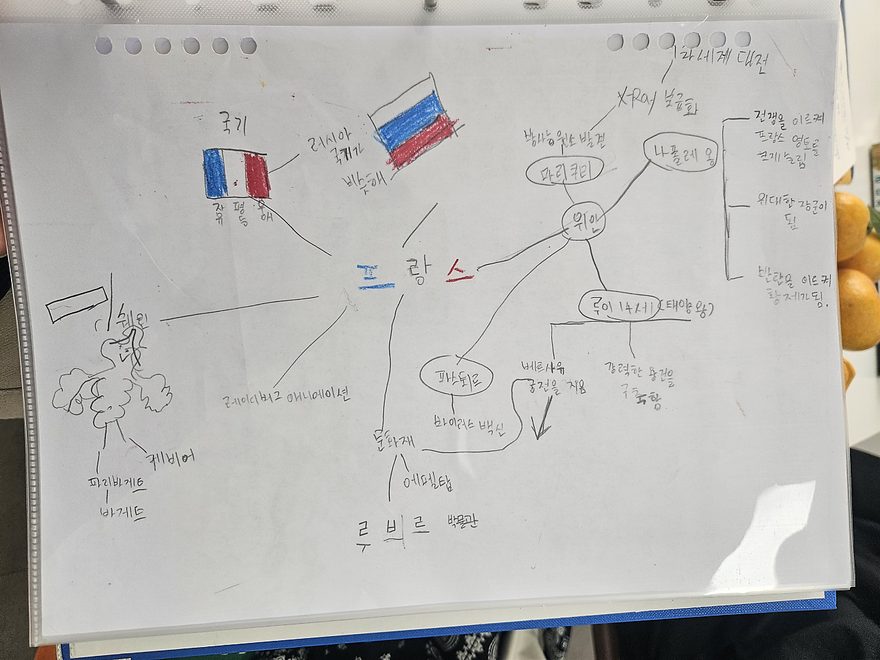 1차세계 대전
X-Ray 보급화
방사능 원소 발견
마리퀴리
나폴레옹
전쟁을 이르켜
프랑스 영토를
크게 늘림
위대한 장군이
됨
반란을 이르켜
황제가됨.
국기
러시아
국기가
비슷해
자유
평등
위인
프랑스
루이 14세 (태양왕)
베르사유
궁전을 지음
강력한 왕권을
구축함.
파스퇴르
바이러스 백신
레이디버그 애니메이션
문화재
에펠탑
루브르 박물관
캐비어
파리바게트
바게트